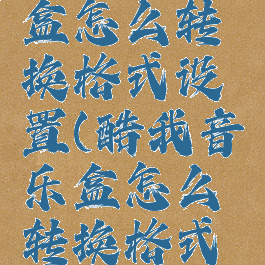 盒怎么转
换格式设
置(酷我音
乐盒怎么
转换格式